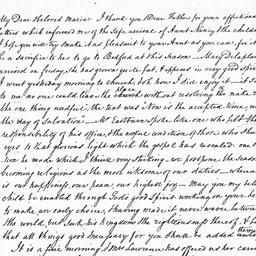 My Dear Beloved Maria. I thank you Dear Father for your affectiona
ters which informed me of the safe arrival of Aunt Nancy & the childr
I hope you will try make it as pleasant to your Aunt as you can, for it
be a sacrifice to her to go to Bedford at this season. Mary Delaplai
arrived on friday, she has grown quite fat, & appears in very good spir
I went yesterday morning to church, & oh how I did enjoy it
to me no one could hear the without resolving to make
the one thing needful; the text was Now is the accepted time, n
the day of Salvation. Mr Eastburn spoke like one who felt the
responsibility of his office, & the awful condition of those who shu
eyes to that glorious light which the gospel has revealed. one
tion he made which I think very striking. we postpone the season
becoming religious as the most irksome of our duties. when
is our happiness, our peace, our highest joy. May you my belo
child be enabled through God's good Spirit working on your he
to make an early choice, & having made it never waver between
the world, but seek his kingdom & the righteousness thereof, &
that all things good & necessary for you shall be added
It is a fine morning & Mrs Lawrence has offered us her carri